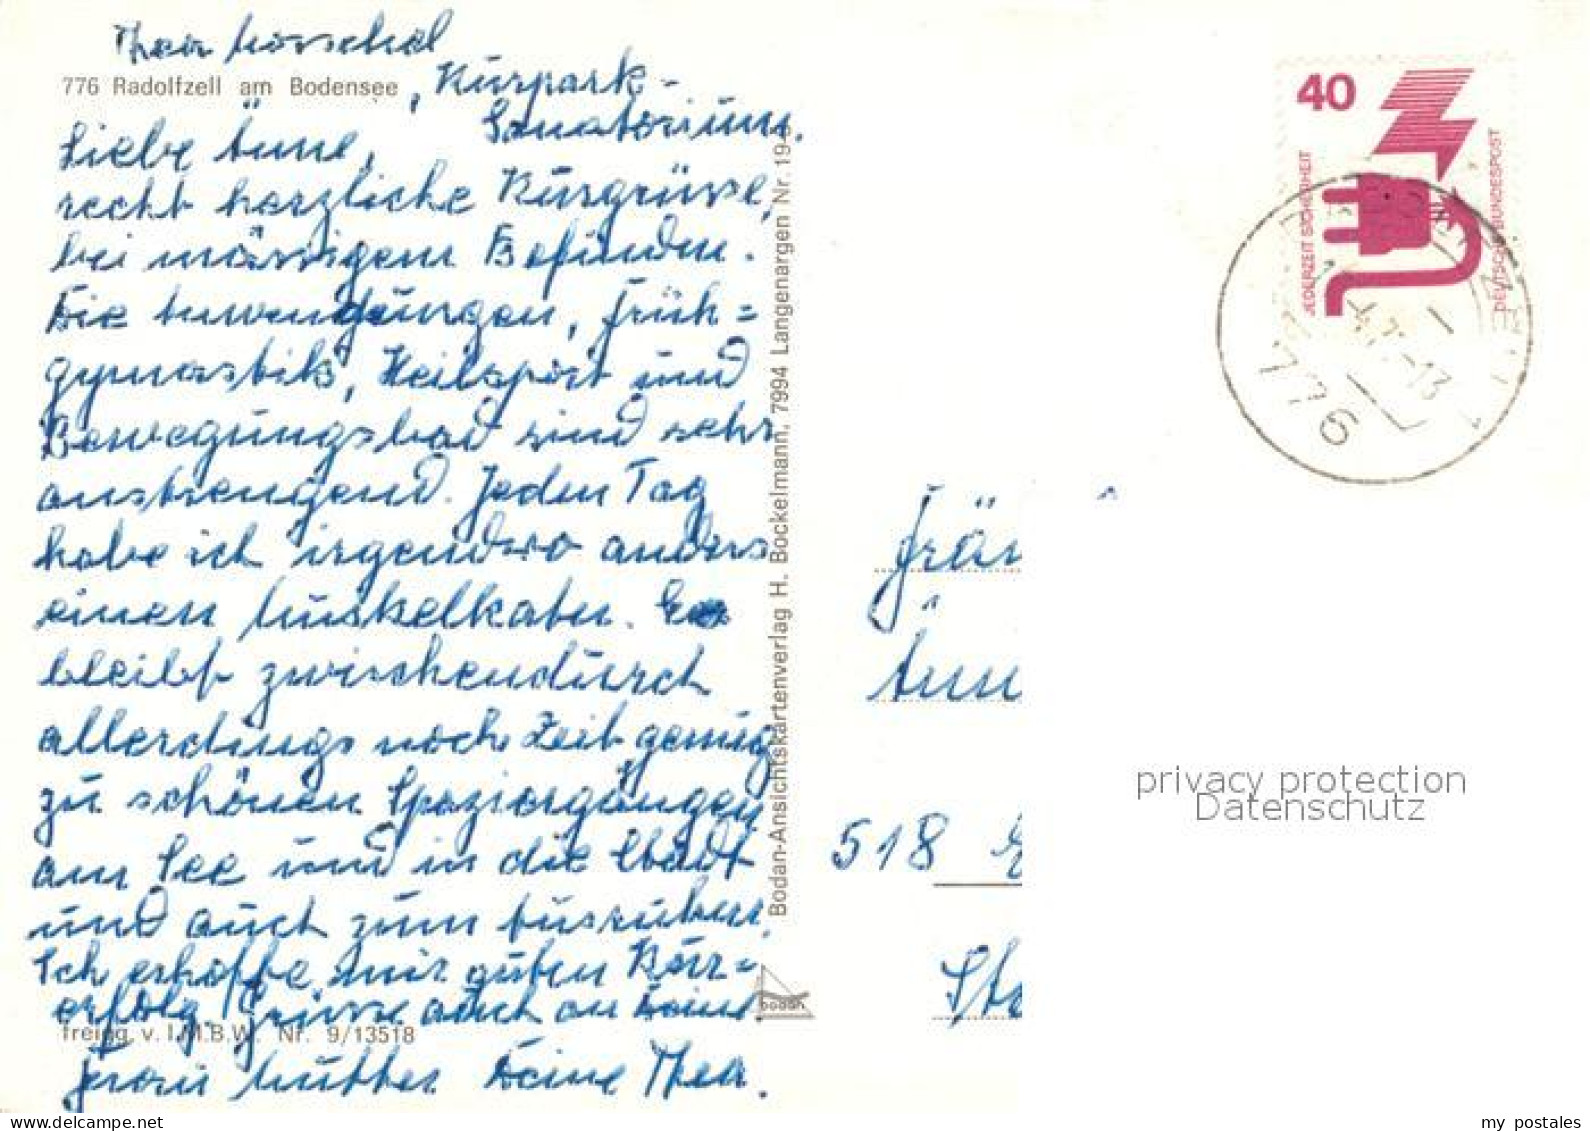 Thea
776 Radolfzell am Bodensee
, Kurpark-
Sanatorium.
Liebe Änne,
recht herzliche Kurgrüsse,
bei mässigem Befinden.
Die Anwendungen, Früh=
gymnastik, Heilsport und
Bewegungsbad sind sehr
anstrengend. Jeden Tag
habe ich irgendwo anders
einen Muskelkater. Es
bleibt zwischendurch
allerdings noch Zeit genug
zu schönen Spaziergängen
am See und in die Stadt
und auch zum Ausruhen.
Ich erhoffe mir guten Kur=
erfolg. Grüsse auch an Deine
Frau Mutter Deine Thea.
freigg. v. I.M.B.W. Nr. 9/13518
Bodan-Ansichtskartenverlag H. Bockelmann, 7994 Langenargen Nr.
bodan
40
JEDERZEIT SICHERHEIT
DEUTSCHE BUNDESPOST
776
-13
Frä
Änn
518
Sto
privacy protection
Datenschutz
my postales